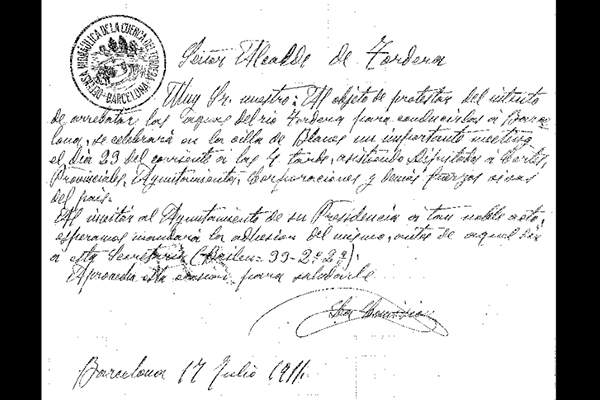 HIDRÁULICA DE LA CUENCA DEL TORDERA
BARCELONA
Señor Alcalde de Tordera
Muy Sr. nuestro: Al objeto de protestar del intento
de arrebatar las aguas del río Tordera para conducirlas a Barce-
lona, se celebrará en la villa de Blanes un importante meeting
el día 23 del corriente a las 4 tarde, asistiendo Diputados a Cortes,
Provinciales, Ayuntamientos, Corporaciones y demás fuerzas vivas
del país.
Al invitar al Ayuntamiento de su Presidencia a tan noble acto,
esperamos mandará la adhesión del mismo, antes de aquel día
a esta Secretaría (Bailen-33-2º-2ª).
Aprovecha esta ocasión para saludarle
La Comisión
Barcelona 17 Julio 1911.